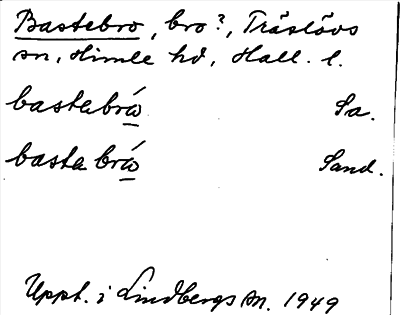 Bastebro, bro?, Träslövs
sn, Himle hd, Hall. l.
bastabrώ Sa.
basta brώ Sand.
Uppt. i Lindbergs sn. 1949